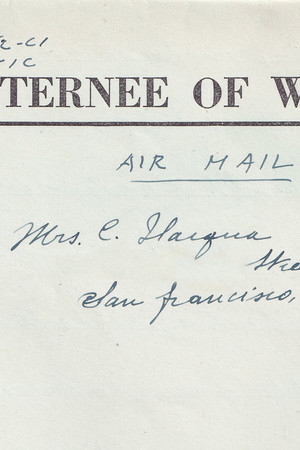 2-C1
-1C
TERNEE OF W
AIR MAIL
Mrs. C. Ilacqua
San Francisco,